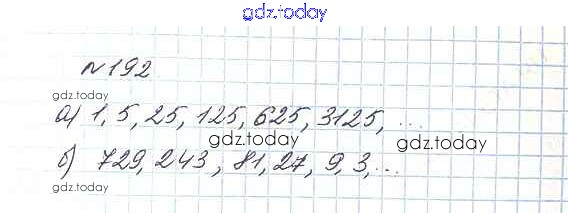 gdz.today
№192
gdz.today
а) 1, 5, 25, 125, 625, 3125, ...
gdz.today gdz.today
б) 729, 243, 81, 27, 9, 3, ...
gdz.today